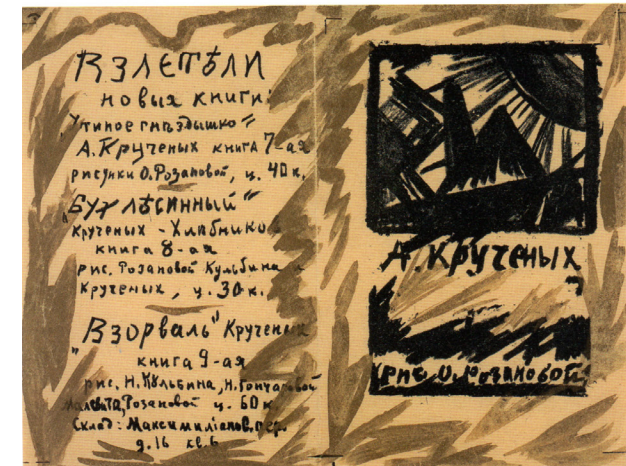 ВЗЛЕТѢЛИ
новыя книги:
"тиное гнѣздышко"
А. Крученых книга 7-ая
рисунки О. Розановой, ц. 40 к.
"Бух лѣсинный"
Крученых - Хлѣбников
книга 8-ая
рис. Розановой Кульбина и
Крученых, ц. 30 к.
"Взорваль" Крученых
книга 9-ая
рис. Н. Кульбина, Н. Гончаровой
Розановой ц. 60 к
Склад: Максимилiанов. пер.
д. 16 кв. 6
А. Крученых
рис. О. Розановой